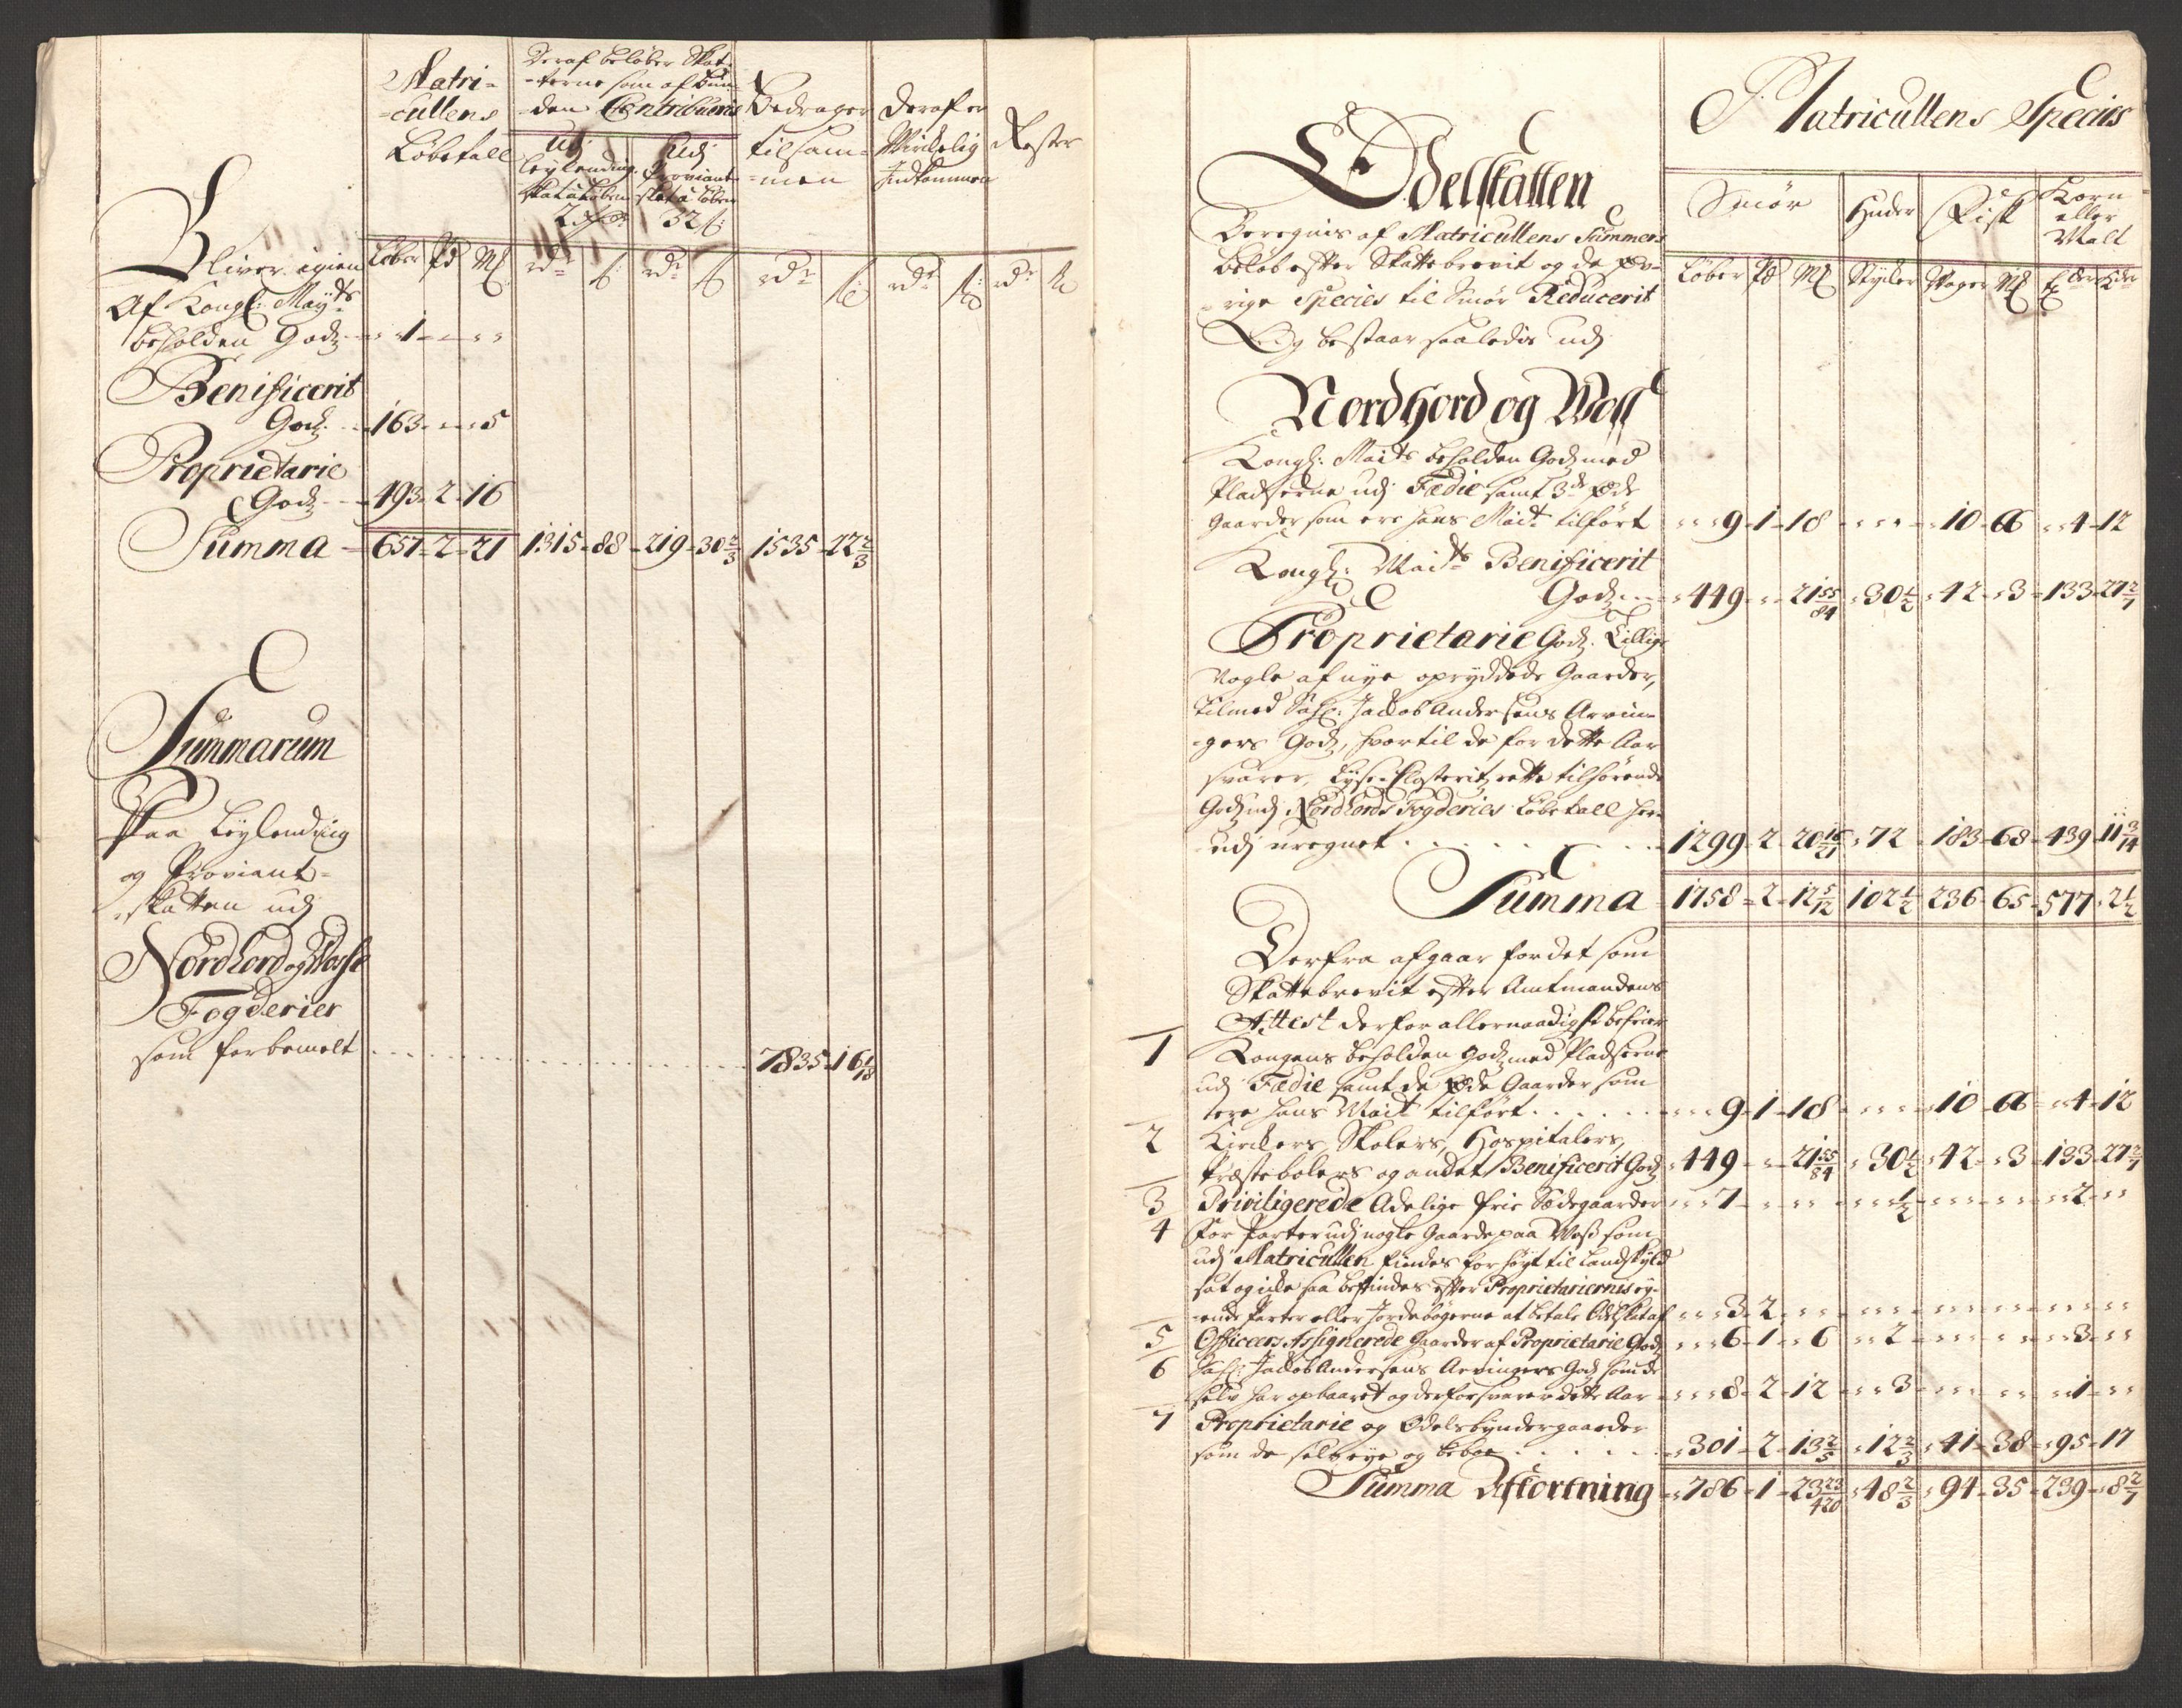 Matri-
-cullens
Løbetall
Deraf beløber Skat-
-terne som af Bun-
-den Contribueris
Udj
Leylendings
skat à Løben
2 rdr
Udj
Proviant-
skat à Løben
32 s:
Bedrager
tilsam-
-men
Deraf er
Virkelig
Indkommen
Rester
Løber Pd Mk rdr s: rdr s: rdr s: rdr s: rdr s:
Bliver igien
Af Kongl: Mayts
beholden Godz 1
Benificerit
Godz 163 5
Proprietarie
Godz 493 - 2 - 16
Summa 657 - 2 - 21 1315 - 88 - 219 - 30 2/3 1535 - 22 2/3
Summarum
Paa Leylending
og Proviant-
skatten udj
Nordhord og Vosse
Fogderier
som forbemelt 7835 - 16 1/18
Matricullens Species
Smør Huder Fisk Korn eller Malt
Løber Pd Mk Stycker Woger Mk
Odelskatten
Beregnis af Matricullens Summers
beløb efter Skattebrevit og de øv-
rige Species til Smør Reducerit
Og bestaar saaledis udj
Nordhord og Woss
Kongl: Maits beholden Godz med
Pladserne udj Fædie samt 3de øde
Gaarder som ere hans Mait tilført 9 - 1 - 18 10 - a 4 - 12
Kongl: Maits Benificerit
Godz 449 21 55/84 30 1/2 42 - 3 - 133 - 27 2/7
Proprietarie Godz Tillige
Nogle af nye opryddede Gaarder,
Tilmed Sahl: Jacob Andersens Arvin-
-gers Godz, hvortil de for dette Aar
svarer, Lyse Closteritz rette tilhørende
Godz udj Nordhords Fogderies Løbetall her-
udj uregnet 1299 - 2 - 20 16/21 72 183 - 68 - 439 - 11 3/14
Summa 1758 - 2 - 12 5/12 102 1/2 236 - 65 - 577 - 2 1/2
Derfra afgaar for det som
Skattebrevit efter Amtmandens
Attest derfor allernaadigst befrier
1 Kongens beholden Godz med Pladserne
udj Fædie samt de øde Gaarder som
ere hans Mait tilført 9 - 1 - 18 10 - a 4 - 12
2 Kirckers, Skolers, Hospitalers,
Præstebolers og andet Benificerit Godz 449 21 55/84 30 1/2 42 - 3 - 133 - 27 2/7
3 Priviligerede Adelige frie Sædegaarder 7 1/2 2
4 For Parter udj nogle Gaarde paa Woss som
udj Matricullen findes for høyt til Landskyld
sat og icke saa befindes efter Proprietariernis ey-
-ende Parter eller Jordebøgerne at betale Odelskat af 3 - 2
5 Officers Assignerede Gaarder af Proprietarie Godz 6 - 1 - 6 2 3
6 Sahl: Jacob Andersens Arvingers Godz som de
selv har opbaaret og derfor svarer dette Aar 8 - 2 - 12 3 1
7 Proprietarie og Odelsbyndergaarder
som de selv eye og beboe 301 - 2 - 13 2/5 12 2/3 41 - 38 - 95 - 17
Summa Afkortning 786 - 1 - 23 23/420 48 2/3 94 - 35 - 239 - 8 2/7